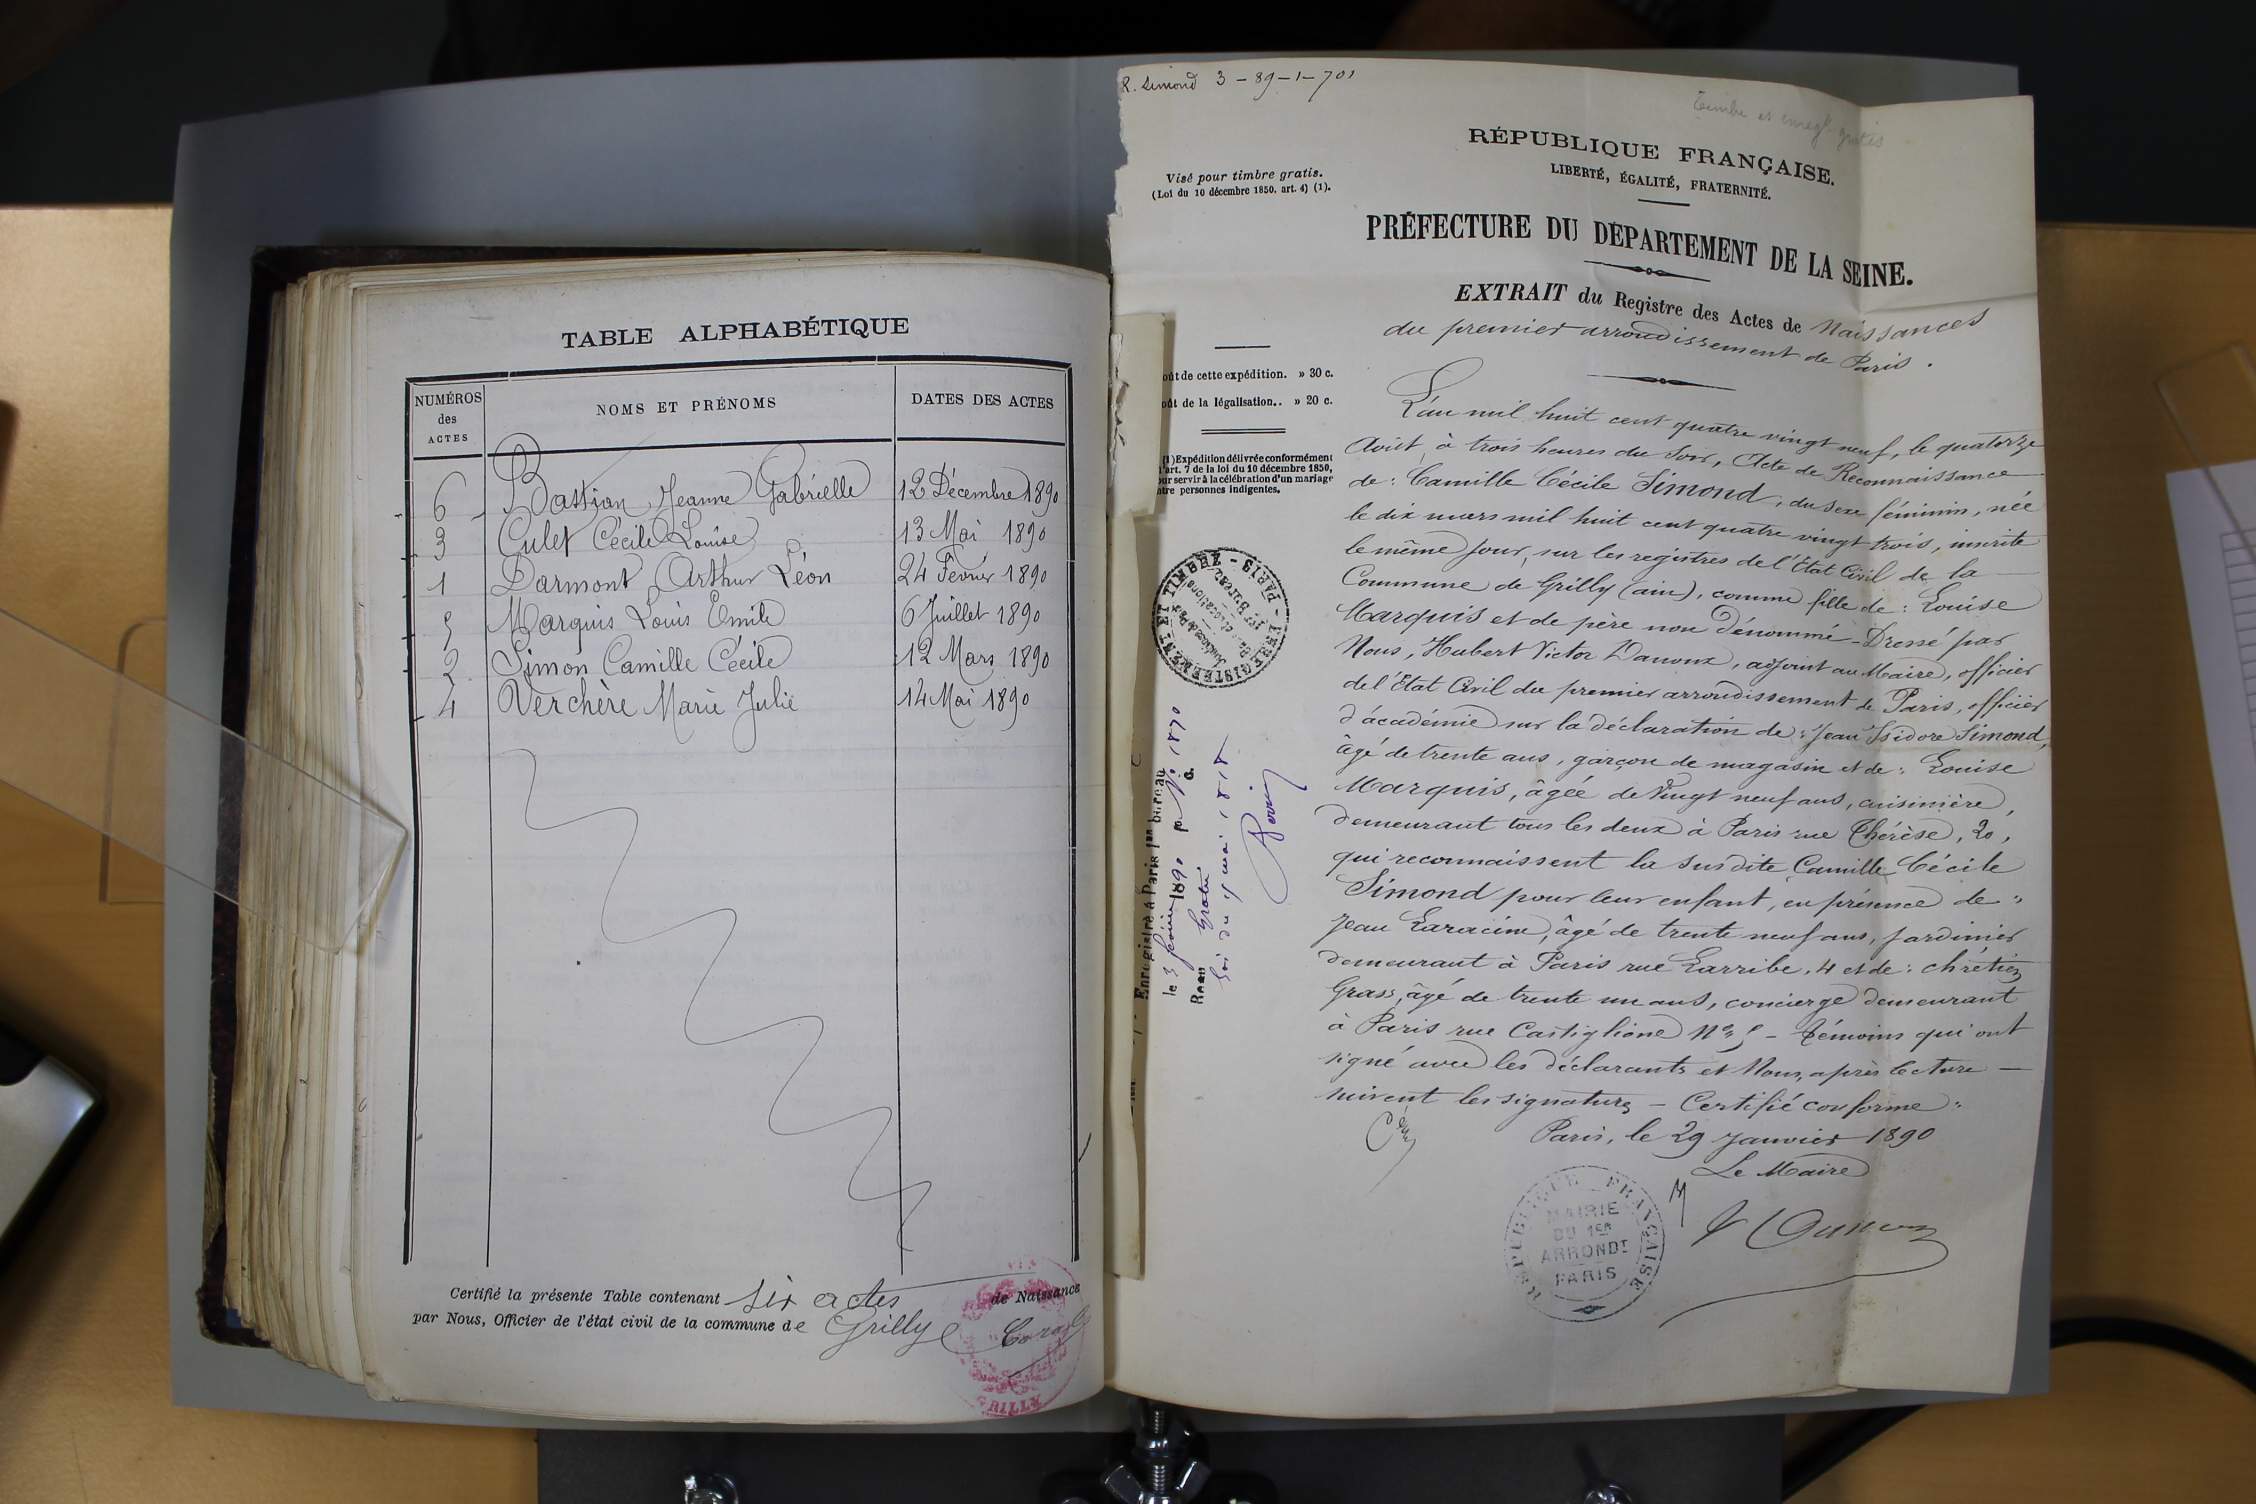 TABLE ALPHABÉTIQUE
NUMÉROS des ACTES
NOMS ET PRÉNOMS
DATES DES ACTES
6 Bastian Jeanne Gabrielle 12 Décembre 1890
3 Culet Cécile Louise 13 Mai 1890
1 Darmont Arthur Léon 24 Février 1890
5 Marquis Louis Emile 6 Juillet 1890
2 Simon Camille Cécile 12 Mars 1890
4 Verchère Marie Julie 14 Mai 1890
Certifié la présente Table contenant six actes de Naissance
par Nous, Officier de l'état civil de la commune de Grilly
GRILLY
R. Simond 3-89-1-701
Timbre et enregt gratis
Visé pour timbre gratis.
(Loi du 10 décembre 1850, art. 4) (1).
RÉPUBLIQUE FRANÇAISE.
LIBERTÉ, ÉGALITÉ, FRATERNITÉ.
PRÉFECTURE DU DÉPARTEMENT DE LA SEINE.
EXTRAIT du Registre des Actes de Naissances
du premier arrondissement de Paris.
oût de cette expédition. » 30 c.
oût de la légalisation.. » 20 c.
(1) Expédition délivrée conformément
l'art. 7 de la loi du 10 décembre 1850,
our servir à la célébration d'un mariage
ntre personnes indigentes.
L'an mil huit cent quatre vingt neuf, le quatorze
Août, à trois heures du Soir, Acte de Reconnaissance
de: Camille Cécile Simond, du sexe féminin, née
le dix mars mil huit cent quatre vingt trois, inscrite
le même jour, sur les registres de l'Etat Civil de la
Commune de Grilly (ain), comme fille de: Louise
Marquis et de père non dénommé - Dressé par
Nous, Hubert Victor Danoux, adjoint au Maire, officier
de l'Etat Civil du premier arrondissement de Paris, officier
d'académie sur la déclaration de: Jean Isidore Simond,
âgé de trente ans, garçon de magasin et de: Louise
Marquis, âgée de Vingt neuf ans, cuisinière,
demeurant tous les deux à Paris rue Thérèse, 20,
qui reconnaissent la susdite Camille Cécile
Simond pour leur enfant, en présence de:
Jean Laracine, âgé de trente neuf ans, jardinier
demeurant à Paris rue Larribe, 4 et de: chrétien
Grass, âgé de trente un ans, concierge demeurant
à Paris rue Castiglione No 5 - témoins qui ont
signé avec les déclarants et Nous, après lecture -
suivent les signatures - Certifié conforme:
Paris, le 29 Janvier 1890
Le Maire
RÉPUBLIQUE FRANÇAISE
MAIRIE
DU 1ER
ARRONDT
PARIS
L'ENREGISTREMENT ET TIMBRE - PARIS -
1er Bureau
Enregistré à Paris 1er bureau
le 3 février 1890
Reçu Gratis